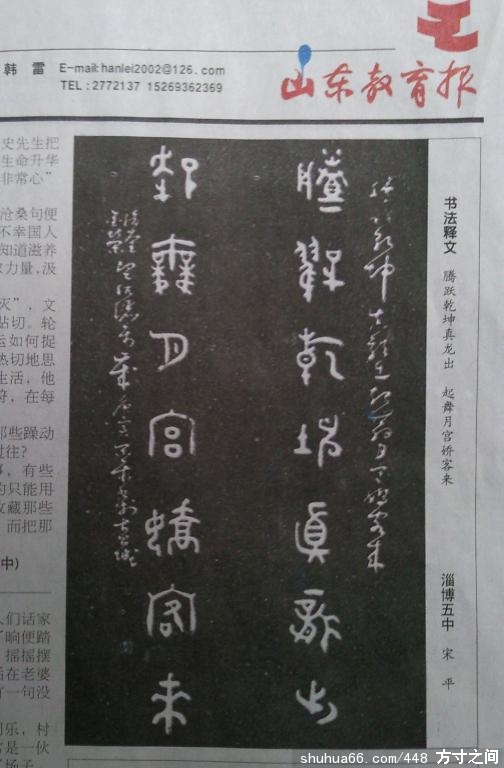 韩 雷 E-mail:hanlei2002@126.com
TEL:2772137 15269362369
山东教育报
史先生把
生命升华
非常心”
沧桑句便
不幸国人
知道滋养
力量,汲
灭”，文
贴切。轮
运如何捉
热切地思
生活，他
符，在每
那些躁动
过往?
事，有些
的只能用
收藏那些
而把那
中)
人们话家
晌便踏
摇摇摆
在老婆
有一句没
乐，村
是一伙
騰躍乾坤真龍出
起舞月宫嬌客來
书法释文 腾跃乾坤真龙出 起舞月宫娇客来
淄博五中 宋 平
shuhua66.com/448 方寸之间